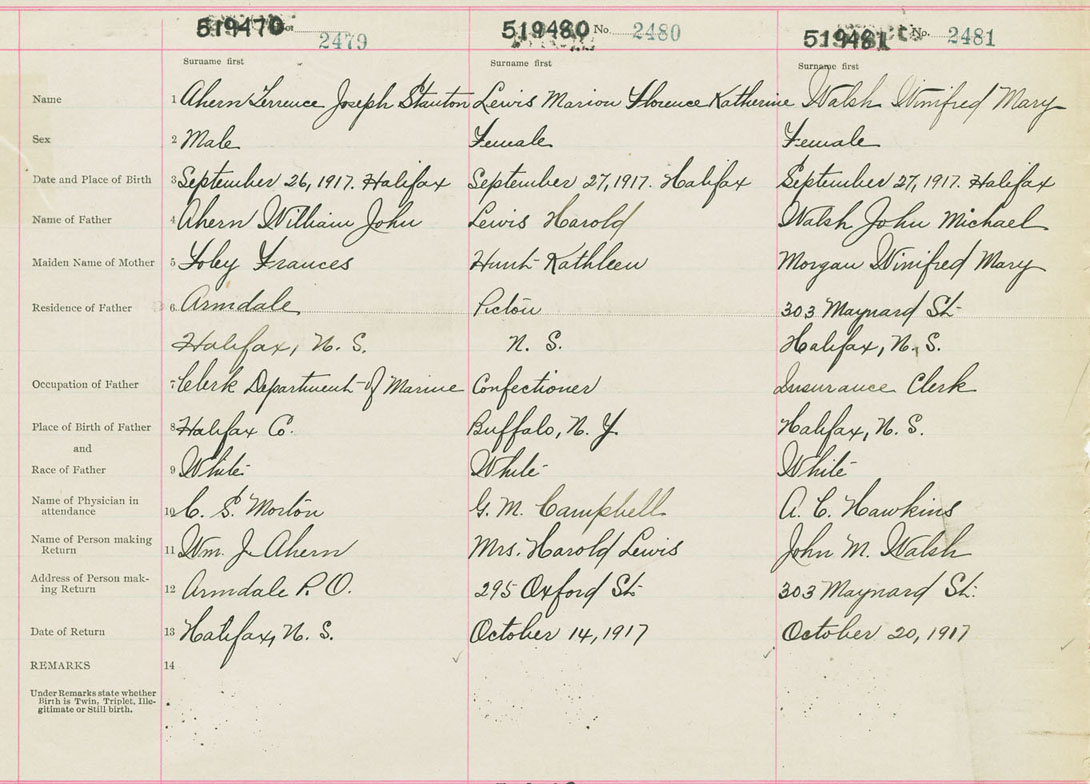 519479 No. 2479 519480 No. 2480 519481 No. 2481
Surname first Surname first Surname first
Name 1 Ahern Terrence Joseph Stanton Lewis Marion Florence Katherine Walsh Winifred Mary
Sex 2 Male Female Female
Date and Place of Birth 3 September 26, 1917. Halifax September 27, 1917. Halifax September 27, 1917. Halifax
Name of Father 4 Ahern William John Lewis Harold Walsh John Michael
Maiden Name of Mother 5 Foley Frances Hunt Kathleen Morgan Winifred Mary
Residence of Father 6 Armdale Pictou 303 Maynard St.
Halifax, N. S. N. S. Halifax, N. S.
Occupation of Father 7 Clerk Department of Marine Confectioner Insurance Clerk
Place of Birth of Father 8 Halifax Co. Buffalo, N. Y. Halifax, N. S.
and
Race of Father 9 White White White
Name of Physician in
attendance 10 C. S. Morton G. M. Campbell A. C. Hawkins
Name of Person making
Return 11 Wm. J. Ahern Mrs. Harold Lewis John M. Walsh
Address of Person mak-
ing Return 12 Armdale P. O. 295 Oxford St. 303 Maynard St.
Date of Return 13 Halifax, N. S. October 14, 1917 October 20, 1917
REMARKS 14
Under Remarks state whether
Birth is Twin, Triplet, Ille-
gitimate or Still birth.